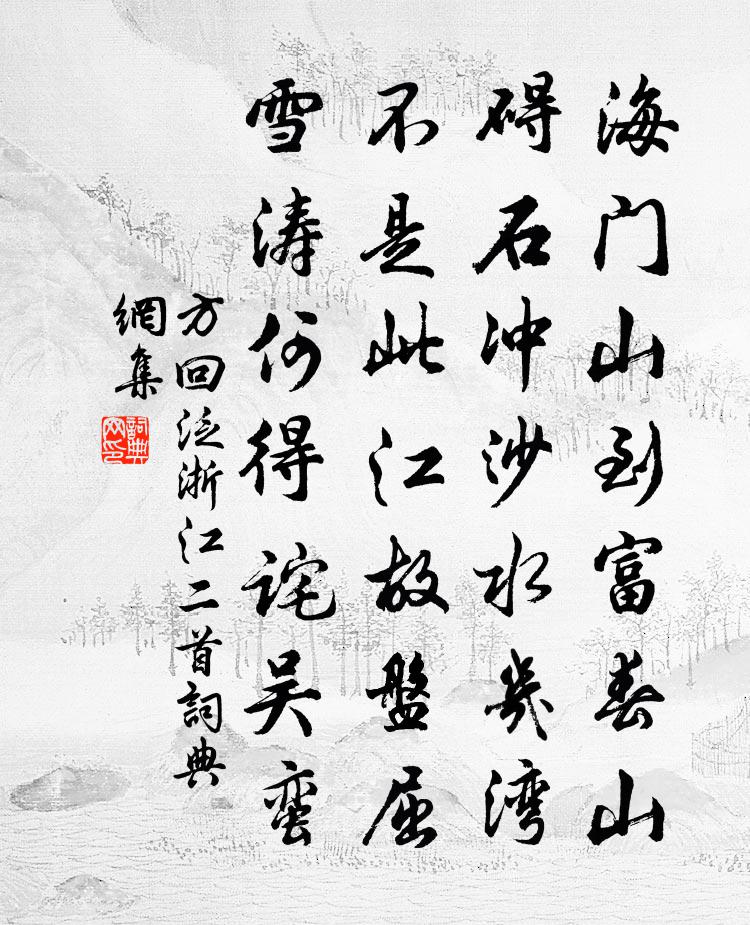 海门山到富春山
碍石冲沙水几湾
不是此江故盤屈
雪涛何得诧吴蛮
方回泛浙江二首詞典
網集
詞典
网印